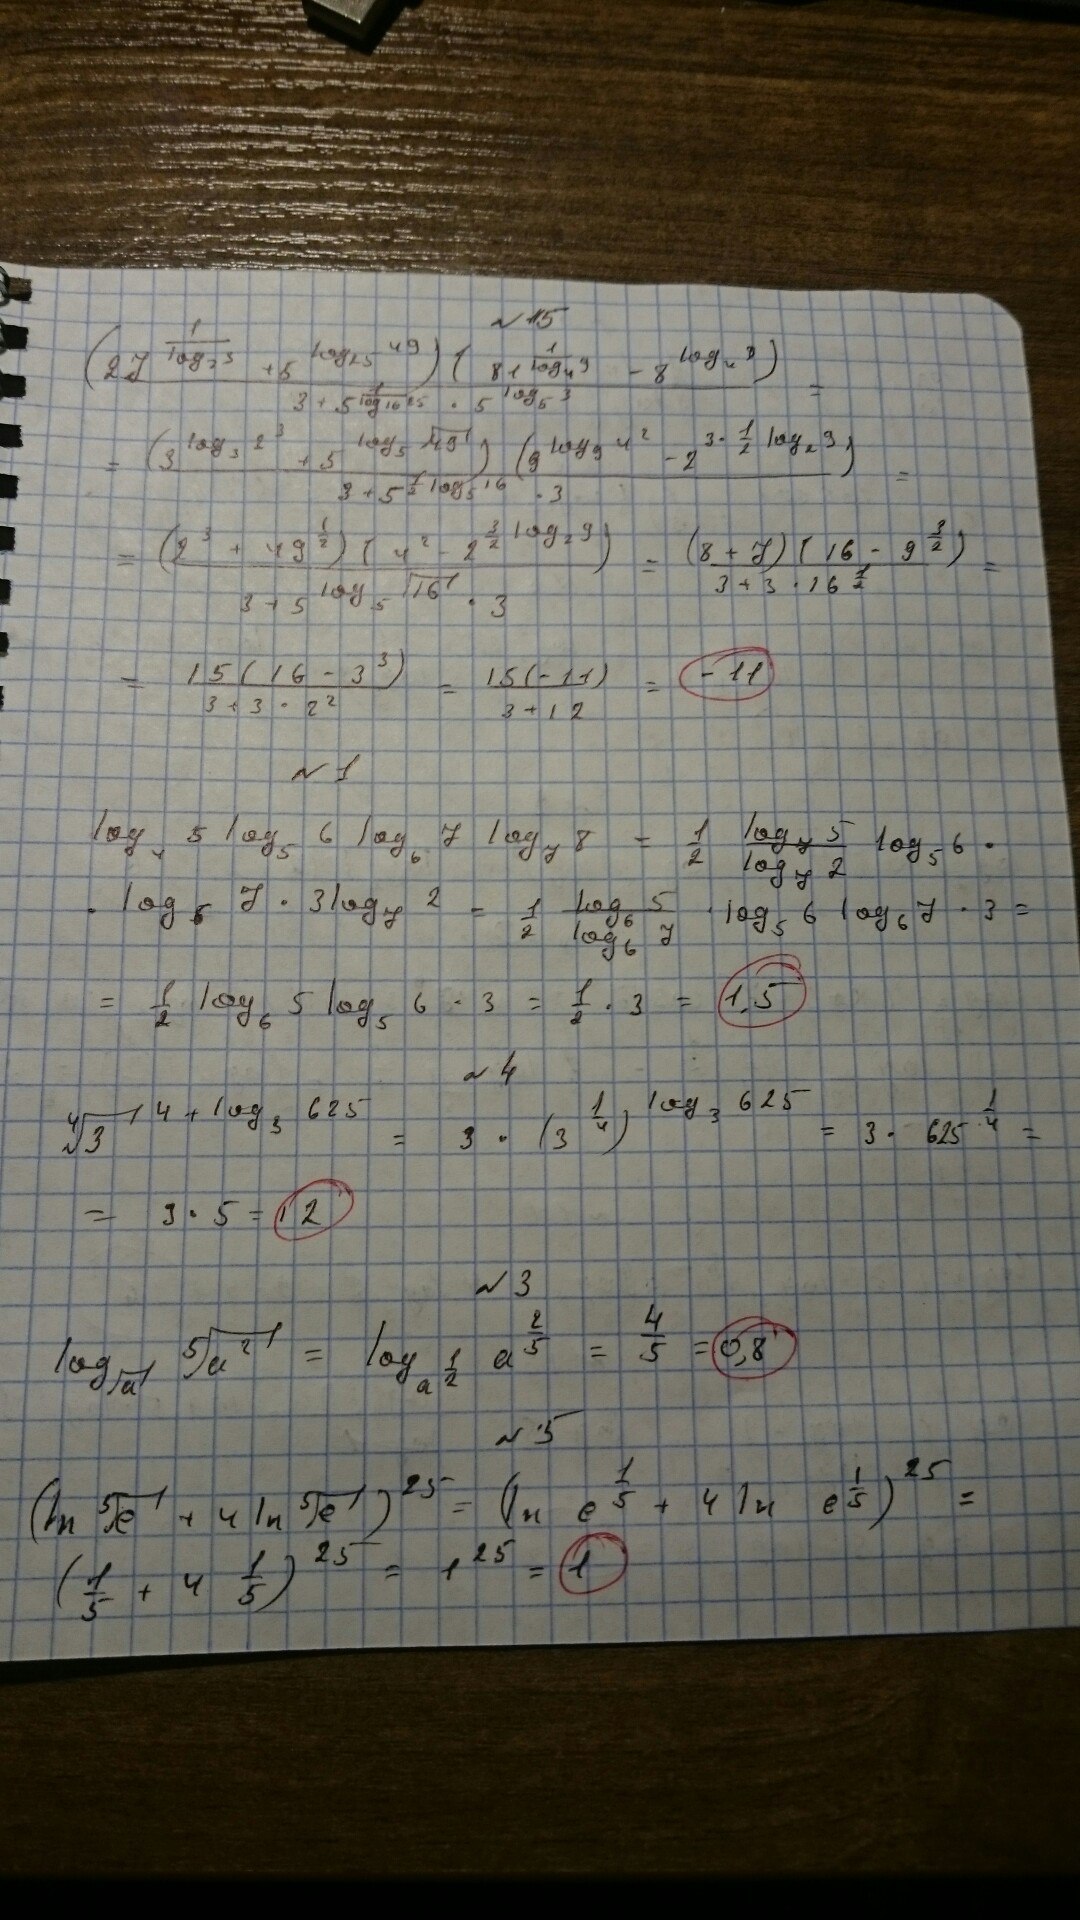 №15
(27^(1/log₂3) + 5^(log₂₅49)) (81^(1/log₄9) - 8^(log₄9)) / (3 + 5^(1/log₁₆25) · 5^(log₅3)) =
= (3^(log₃2³) + 5^(log₅√49)) (9^(log₉4²) - 2^(3·1/2 log₂9)) / (3 + 5^(1/2 log₅16) · 3) =
= (2³ + 49^(1/2)) (4² - 2^(3/2 log₂9)) / (3 + 5^(log₅√16) · 3) = (8 + 7) (16 - 9^(3/2)) / (3 + 3 · 16^(1/2)) =
= 15(16 - 3³) / (3 + 3 · 2²) = 15(-11) / (3 + 12) = -11
№1
log₄5 log₅6 log₆7 log₇8 = 1/2 log₇5/log₇2 log₅6 ·
· log₆7 · 3log₇2 = 1/2 log₆5/log₆7 · log₅6 log₆7 · 3 =
= 1/2 log₆5 log₅6 · 3 = 1/2 · 3 = 1,5
№4
⁴√3^(4 + log₃625) = 3 · (3^(1/4))^(log₃625) = 3 · 625^(1/4) =
= 3 · 5 = 12
№3
log_√a ⁵√a² = log_a^(1/2) a^(2/5) = 4/5 = 0,8
№5
(ln ⁵√e + 4 ln ⁵√e)^25 = (ln e^(1/5) + 4 ln e^(1/5))^25 =
(1/5 + 4 1/5)^25 = 1^25 = 1